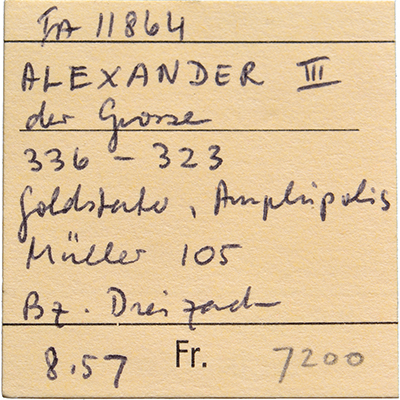 TA 11864
ALEXANDER III
der Grosse
336 – 323
Goldstater, Amphipolis
Müller 105
Bz. Dreizack
8.57 Fr. 7200